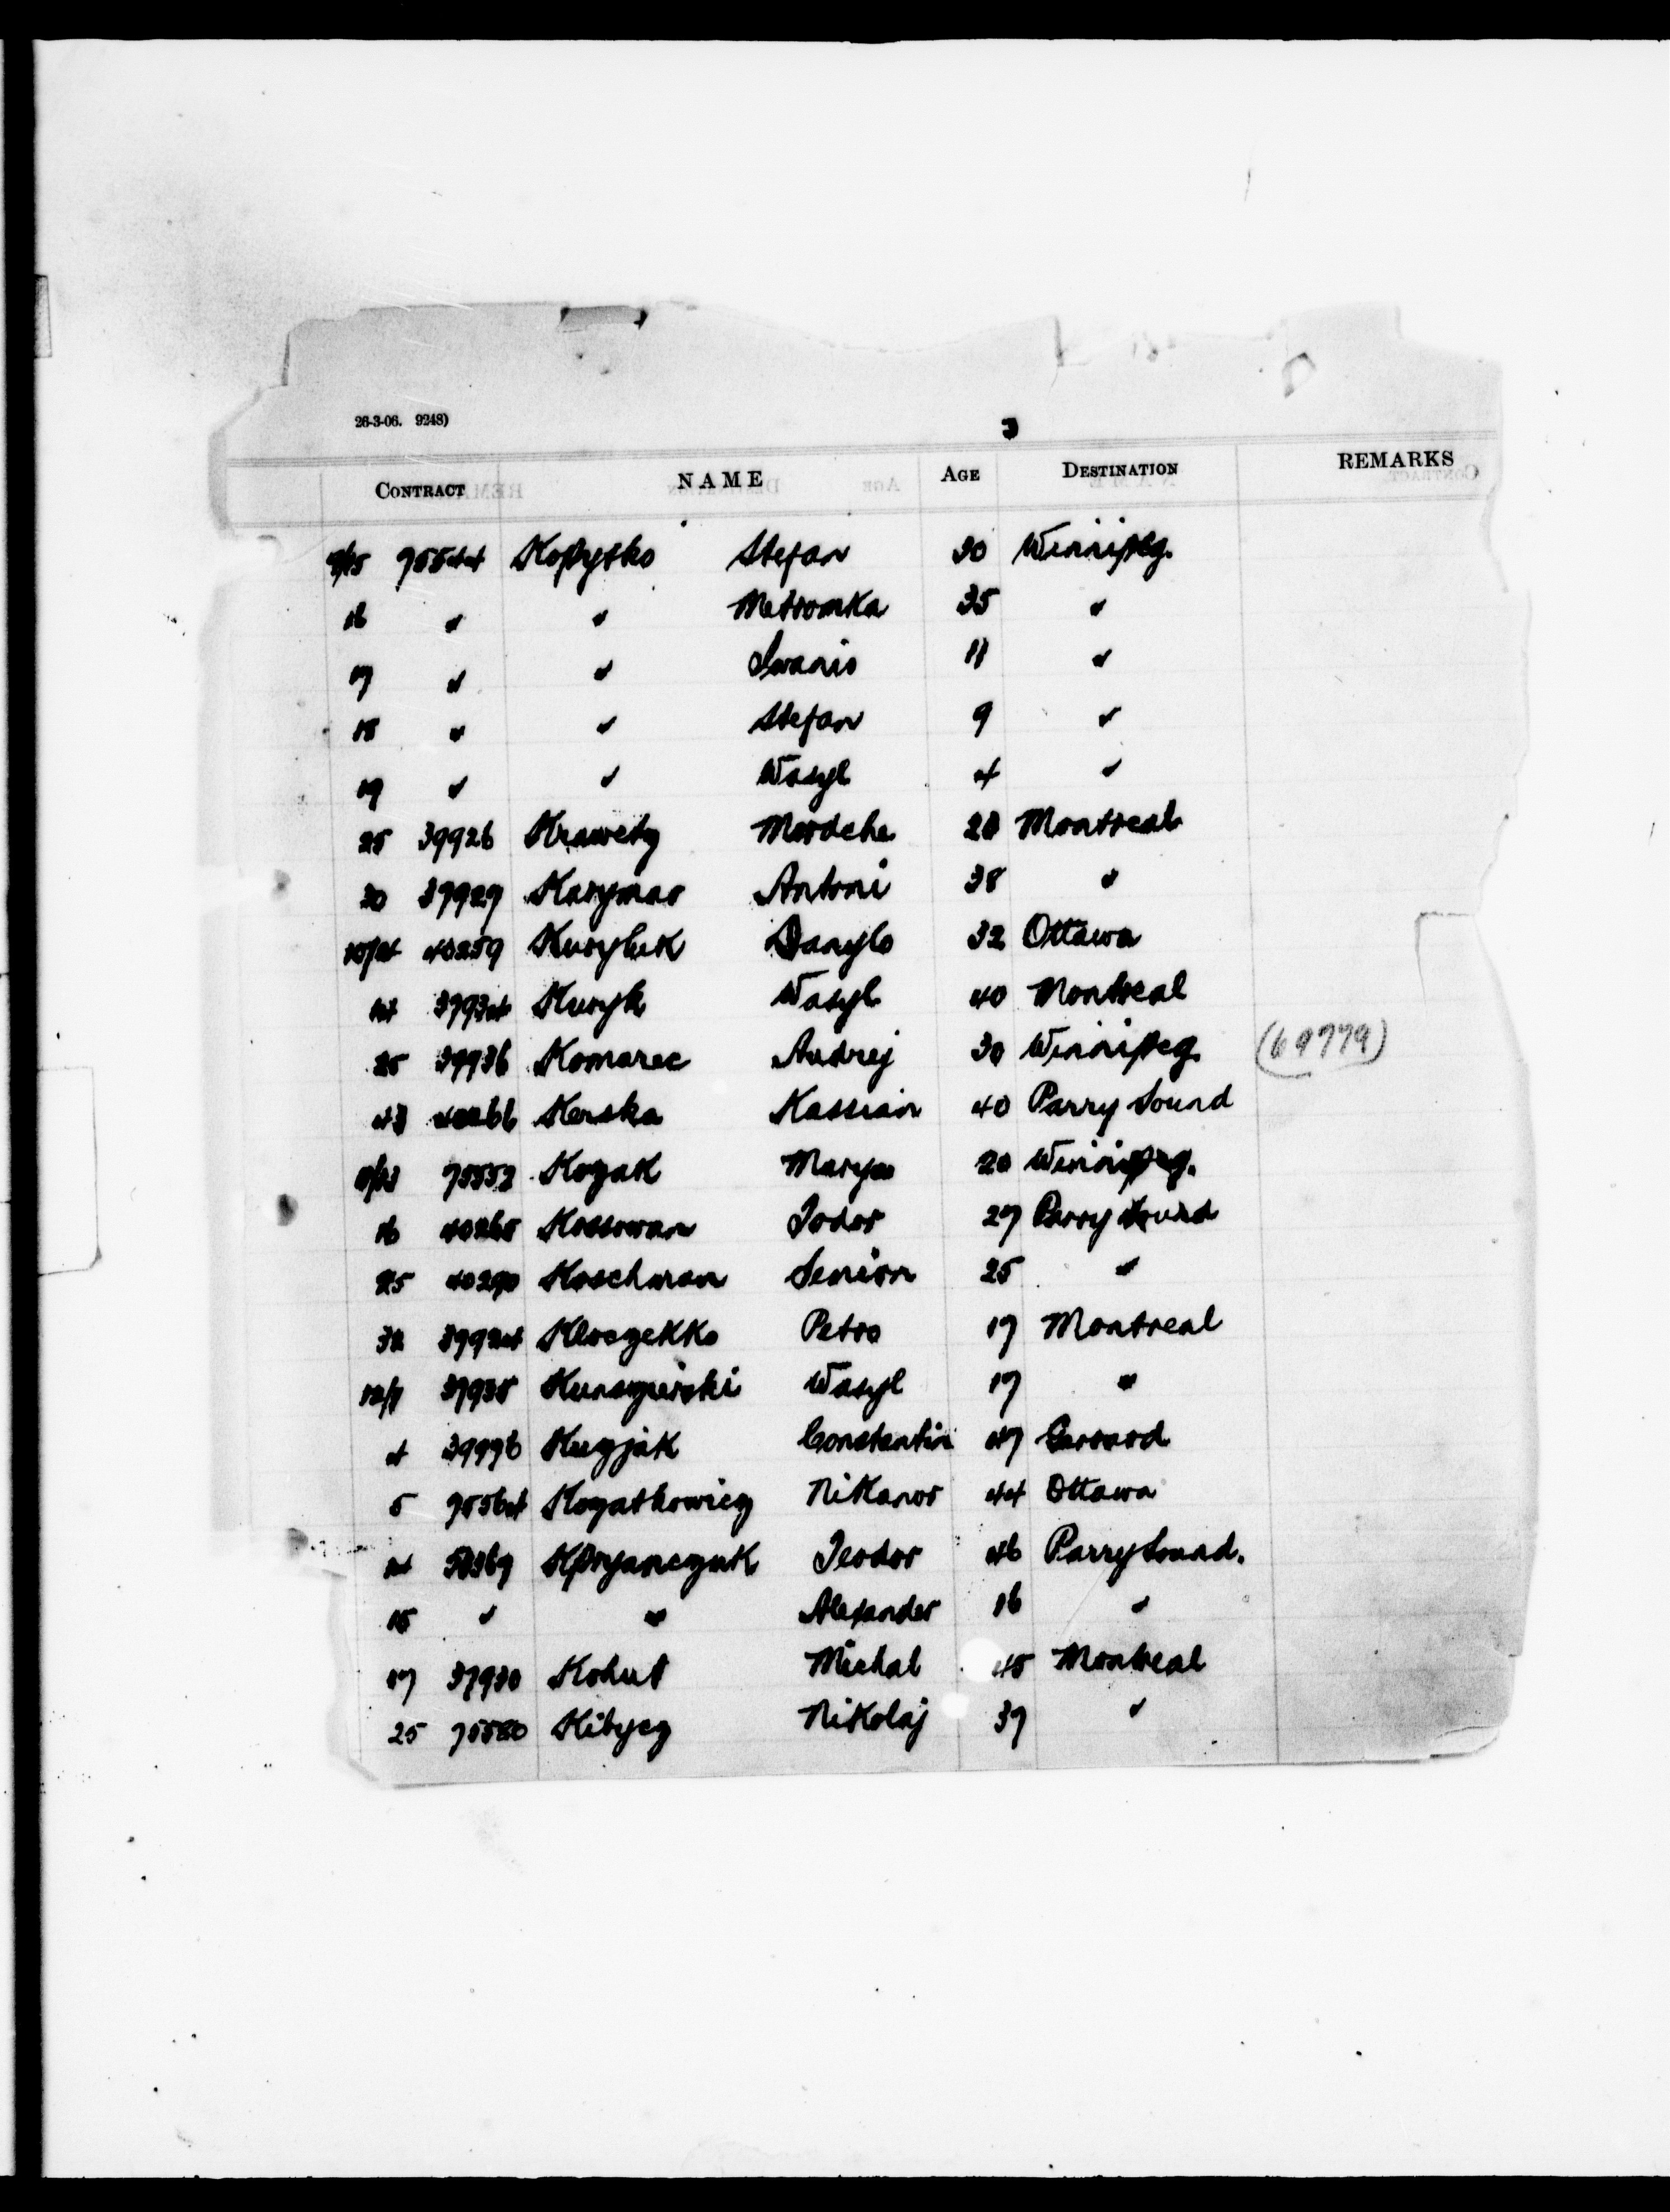 26-3-06. 9248)
3
CONTRACT NAME AGE DESTINATION REMARKS
9/15 75544 Kopytko Stefan 30 Winnipeg.
16 " " Metromka 35 "
17 " " Iwanio 11 "
18 " " Stefan 9 "
19 " " Wasyl 4 "
25 39926 Krawetz Mordche 28 Montreal
30 37929 Antoni 38 "
10/4 40259 Kuryluk Danylo 32 Ottawa
14 37934 Kuryk Wasyl 40 Montreal
25 39936 Komarec Andrej 30 Winnipeg. (69779)
43 40266 Kassian 40 Parry Sound
75553 Kozak Marya 20 Winnipeg.
16 40265 Kossowan Fodor 27 Parry Sound
25 40290 Koschman Semion 25 "
32 Petro 17 Montreal
12/1 37935 Wasyl 17 "
4 39996 Kuzjak Constantin 47
5 75564 Kozatkowicz Nikanor 44 Ottawa
14 Teodor 46 Parry Sound.
15 " " Alexander 16 "
17 37930 Kohut Michal 45 Montreal
25 75580 Kibycz Nikolaj 37 "